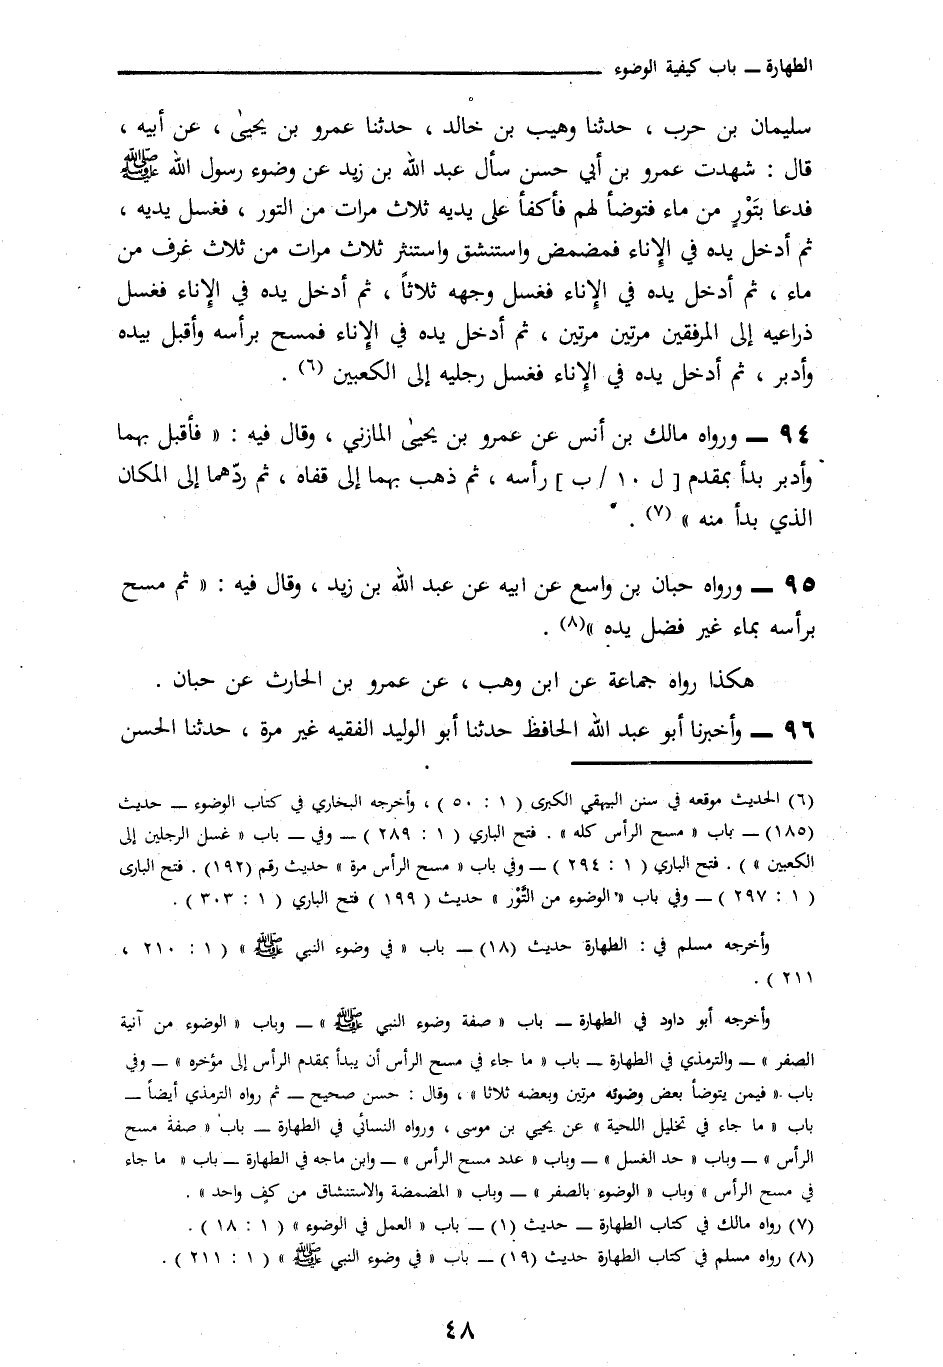 الطهارة ــ باب كيفية الوضوء
سليمان بن حرب ، حدثنا وهيب بن خالد ، حدثنا عمرو بن يحيىٰ ، عن أبيه ،
قال : شهدت عمرو بن أبي حسن سأل عبد الله بن زيد عن وضوء رسول الله ﷺ
فدعا بتَوْرٍ من ماء فتوضأ لهم فأكفأ على يديه ثلاث مرات من التور ، فغسل يديه ،
ثم أدخل يده في الإناء فمضمض واستنشق واستنثر ثلاث مرات من ثلاث غرف من
ماء ، ثم أدخل يده في الإناء فغسل وجهه ثلاثاً ، ثم أدخل يده في الإناء فغسل
ذراعيه إلى المرفقين مرتين مرتين ، ثم أدخل يده في الإناء فمسح برأسه وأقبل بيده
وأدبر ، ثم أدخل يده في الإناء فغسل رجليه إلى الكعبين (٦) .
٩٤ ــ ورواه مالك بن أنس عن عمرو بن يحيىٰ المازني ، وقال فيه : « فأقبل بهما
وأدبر بدأ بمقدم [ ل ١٠ / ب ] رأسه ، ثم ذهب بهما إلى قفاه ، ثم ردّهما إلى المكان
الذي بدأ منه » (٧) .
٩٥ ــ ورواه حبان بن واسع عن ابيه عن عبد الله بن زيد ، وقال فيه : « ثم مسح
برأسه بماء غير فضل يده »(٨) .
هكذا رواه جماعة عن ابن وهب ، عن عمرو بن الحارث عن حبان .
٩٦ ــ وأخبرنا أبو عبد الله الحافظ حدثنا أبو الوليد الفقيه غير مرة ، حدثنا الحسن
(٦) الحديث موقعه في سنن البيهقي الكبرى ( ١ : ٥٠ ) ، وأخرجه البخاري في كتاب الوضوء ــ حديث
(١٨٥) ــ باب « مسح الرأس كله » . فتح الباري ( ١ : ٢٨٩ ) ــ وفي ــ باب « غسل الرجلين إلى
الكعبين » ) . فتح الباري ( ١ : ٢٩٤ ) ــ وفي باب « مسح الرأس مرة » حديث رقم (١٩٢) . فتح البارى
( ١ : ٢٩٧ ) ــ وفي باب « الوضوء من التَّوْر » حديث ( ١٩٩ ) فتح الباري ( ١ : ٣٠٣ ) .
وأخرجه مسلم في : الطهارة حديث (١٨) ــ باب « في وضوء النبي ﷺ » ( ١ : ٢١٠ ،
٢١١ ) .
وأخرجه أبو داود في الطهارة ــ باب « صفة وضوء النبي ﷺ » ــ وباب « الوضوء من آنية
الصفر » ــ والترمذي في الطهارة ــ باب « ما جاء في مسح الرأس أن يبدأ بمقدم الرأس إلى مؤخره » ــ وفي
باب « فيمن يتوضأ بعض وضوئه مرتين وبعضه ثلاثا » ، وقال : حسن صحيح ــ ثم رواه الترمذي أيضاً ــ
باب « ما جاء في تخليل اللحية » عن يحيي بن موسى ، ورواه النسائي في الطهارة ــ باب « صفة مسح
الرأس » ــ وباب « حد الغسل » ــ وباب « عدد مسح الرأس » ــ وابن ماجه في الطهارة ــ باب « ما جاء
في مسح الرأس » وباب « الوضوء بالصفر » ــ وباب « المضمضة والاستنشاق من كف واحد » .
(٧) رواه مالك في كتاب الطهارة ــ حديث (١) ــ باب « العمل في الوضوء » ( ١ : ١٨ ) .
(٨) رواه مسلم في كتاب الطهارة حديث (١٩) ــ باب « في وضوء النبي ﷺ » ( ١ : ٢١١ ) .
٤٨